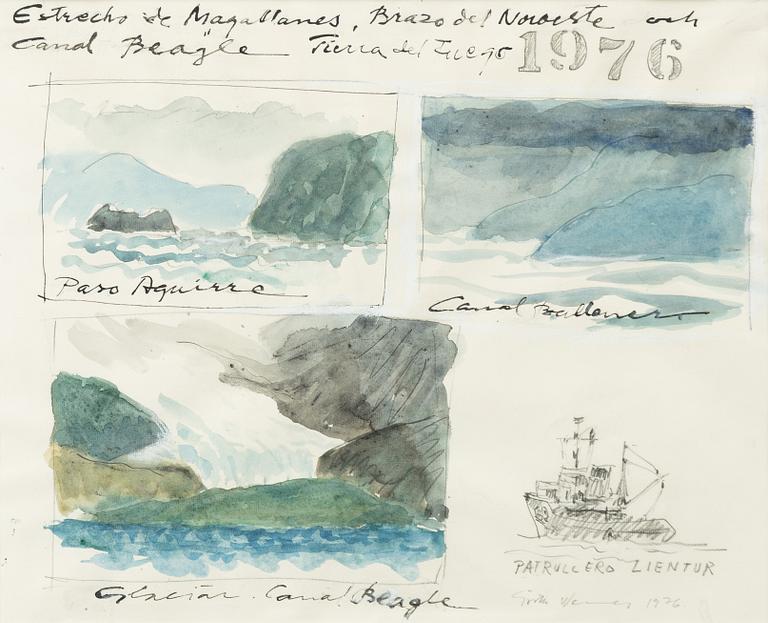 Estrecho de Magallanes, Brazo del Noroeste och
Canal Beagle Tierra del Fuego 1976
Paso Aguirre
Canal Ballenero
Glaciar. Canal Beagle
PATRULLERO LIENTUR
1976